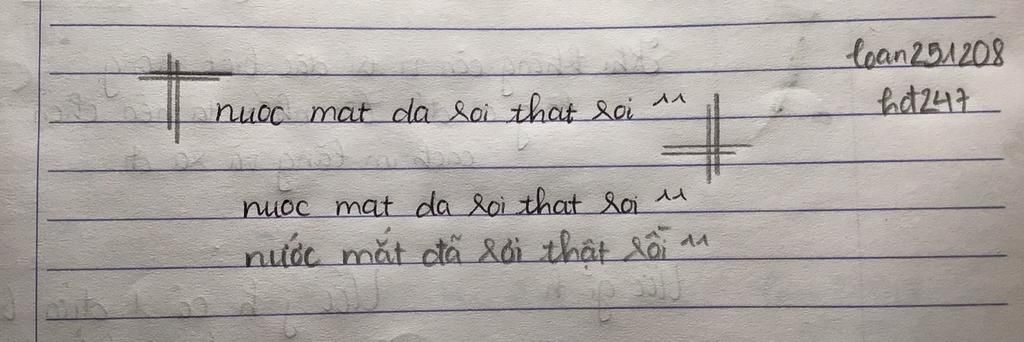 loan251208
hd247
nuoc mat da roi that roi ^^
nuoc mat da roi that roi ^^
nước mắt đã rơi thật rồi ^^